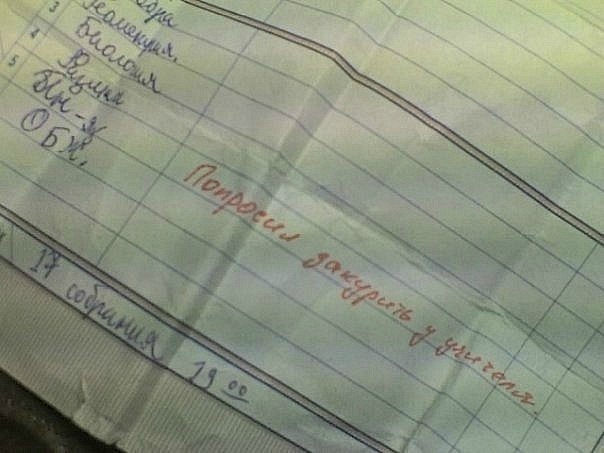 3 Геометрия,
4 Биология
Физика
5 Ин-я
ОБЖ,
Попросил закурить у учителя.
17 собрания 19 00